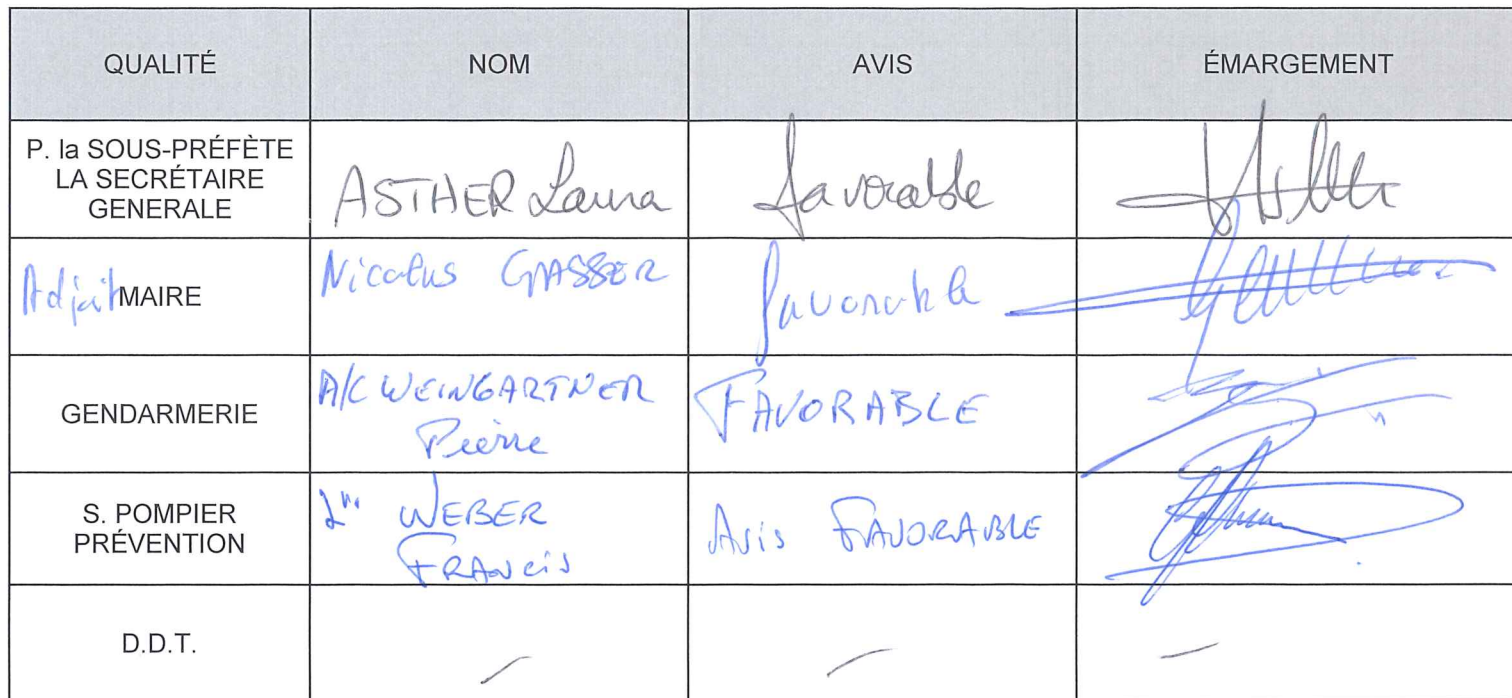 QUALITÉ NOM AVIS ÉMARGEMENT
P. la SOUS-PRÉFÈTE
LA SECRÉTAIRE
GENERALE
ASTHER Laura favorable
Adjoint MAIRE Nicolas GASSER favorable
GENDARMERIE A/C WEINGARTNER
Pierre
FAVORABLE
S. POMPIER
PRÉVENTION
WEBER
FRANCIS
Avis FAVORABLE
D.D.T. — — —